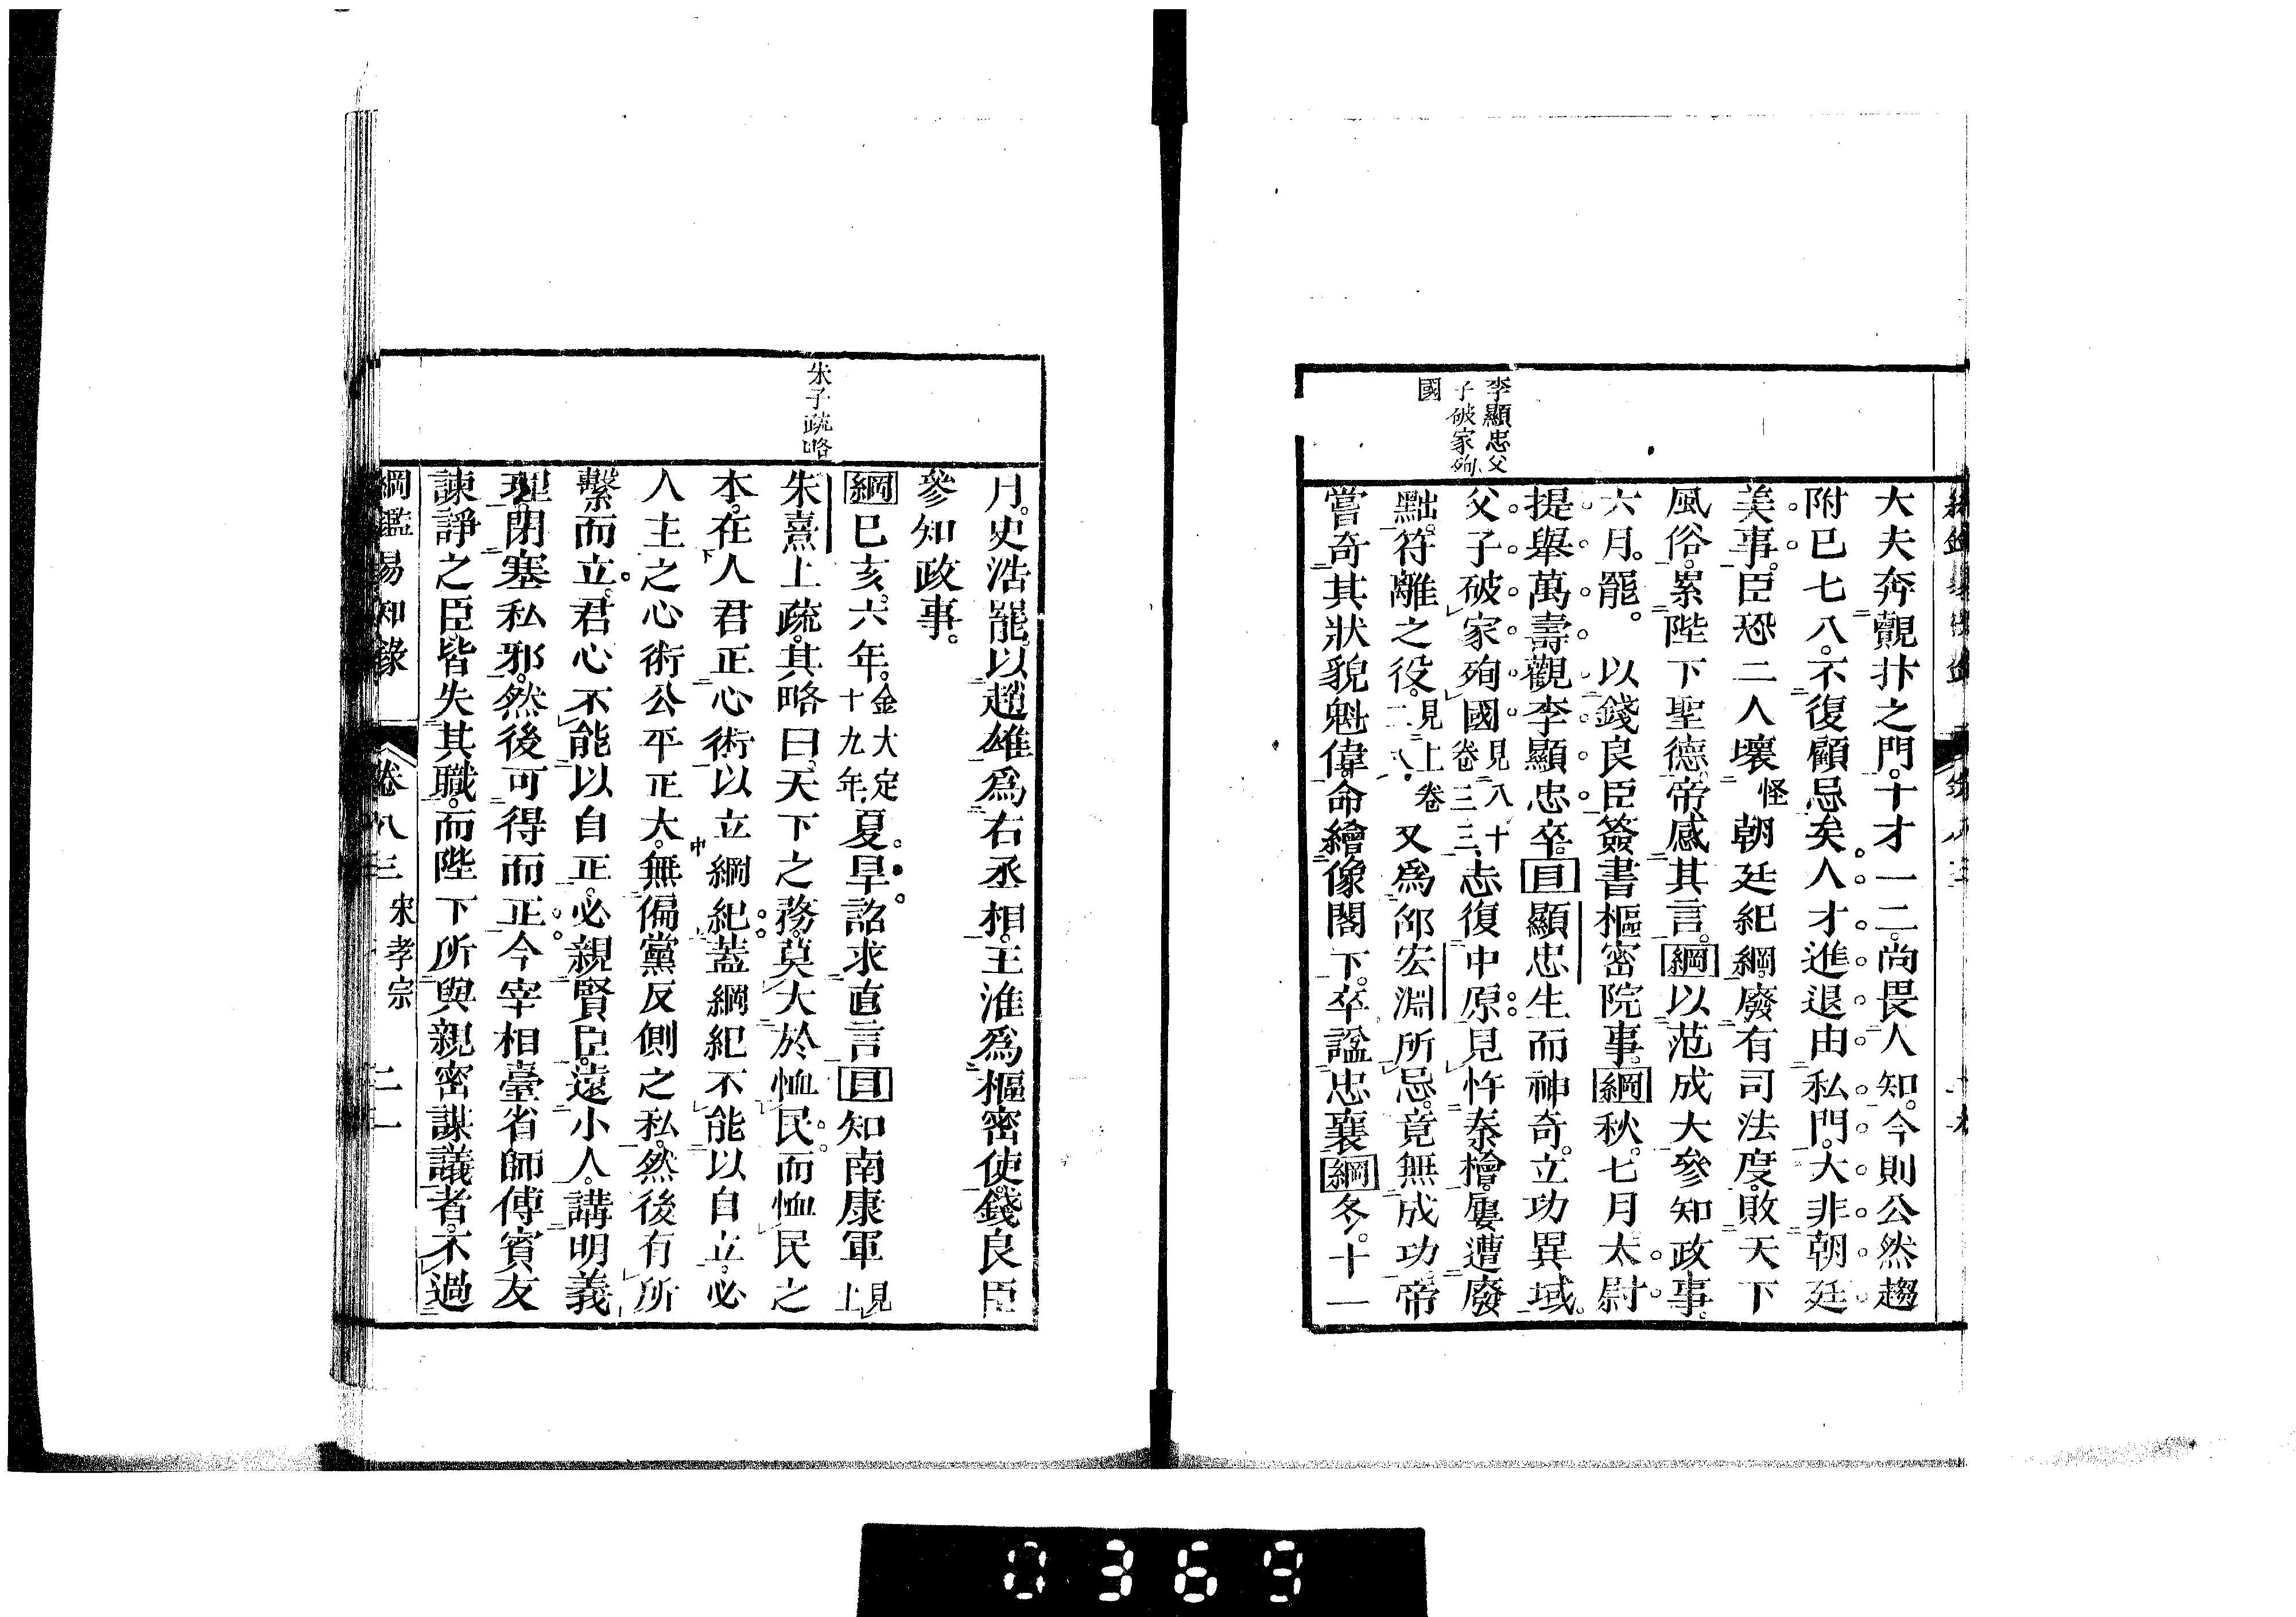 大夫奔覿抃之門。十才一二。尚畏人知。今則公然趨
附已七八。不復顧忌矣。人才進退由私門。大非朝廷
美事。臣恐二人壞怪朝廷紀綱。廢有司法度。敗天下
風俗。累陛下聖德。帝感其言。綱以范成大參知政事。
六月。罷。以錢良臣簽書樞密院事。綱秋。七月。太尉。
提舉萬壽觀李顯忠卒。目顯忠生而神奇。立功異域。
父子破家殉國見八十卷三三、志復中原。見忤秦檜。屢遭廢
黜。符離之役。見上卷二八。又爲邵宏淵所忌。竟無成功。帝
嘗奇其狀貌魁偉。命繪像閣下。卒諡忠襄綱冬。十一
李顯忠父
子破家殉
國
月。史浩罷。以趙雄爲右丞相。王淮爲樞密使。錢良臣
參知政事。
綱已亥。六年。金大定十九年。夏。旱。詔求直言目知南康軍見上
朱熹上疏。其略曰。天下之務。莫大於恤民。而恤民之
本。在人君正心術以立綱紀。蓋綱紀不能以自立。必
人主之心術公平正大。無偏黨反側之私。然後有所
繫而立。君心不能以自正。必親賢臣。遠小人。講明義
理。閉塞私邪。然後可得而正。今宰相臺省師傅賓友
諫諍之臣皆失其職。而陛下所與親密謀議者。不過
朱子疏略
綱鑑易知錄 卷八三 宋孝宗 二一
0369